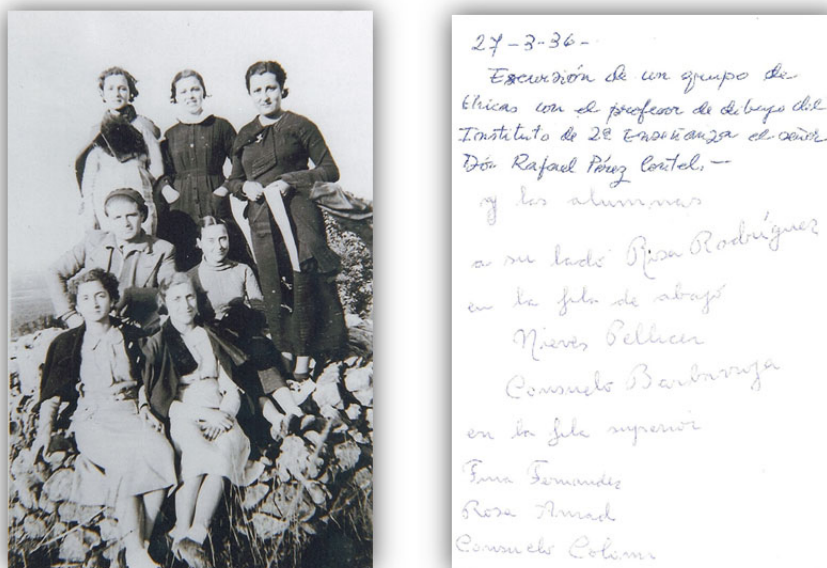 27-3-36-
Escursión de un grupo de
chicas con el profesor de dibujo del
Instituto de 2ª Enseñanza el señor
Don Rafael Pérez Contel.—
y las alumnas
a su lado Rosa Rodríguez
en la fila de abajo
Nieves Pellicer
Consuelo Barbarroja
en la fila superior
Fina Fernandez
Rosa Amad
Consuelo Colom